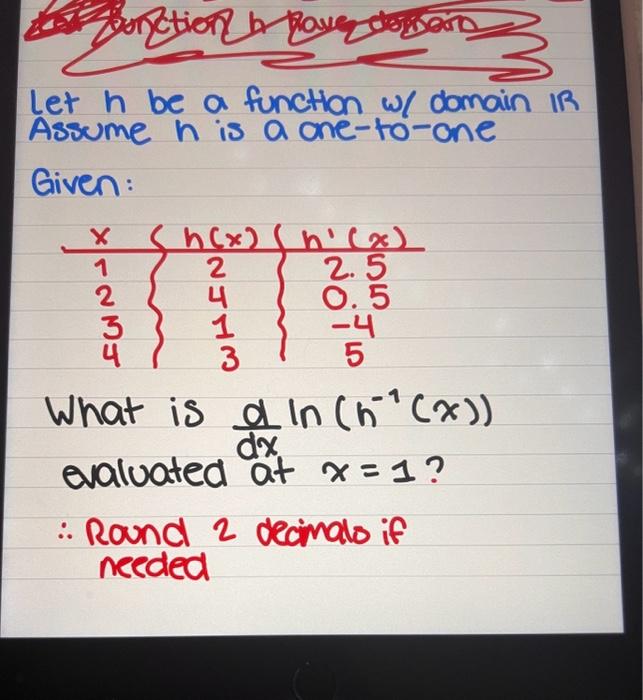 function h have domain
Let h be a function w/ domain IR
Assume h is a one-to-one
Given:
x h(x) h'(x)
1 2 2.5
2 4 0.5
3 1 -4
4 3 5
What is d/dx ln(h⁻¹(x))
evaluated at x = 1?
∴ Round 2 decimals if
needed